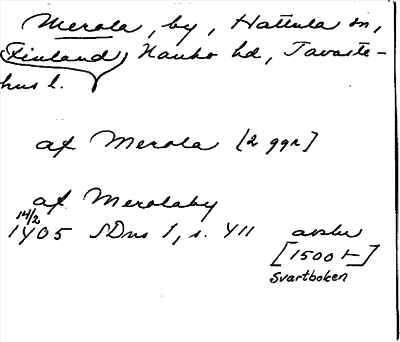 Merola, by, Hattula sn,
Finland, Hauho hd, Tavaste-
hus l.
af Merola [2 ggr]
af Merolaby
14/2
1405 SDns 1, s. 411 avskr
[1500 t]
Svartboken